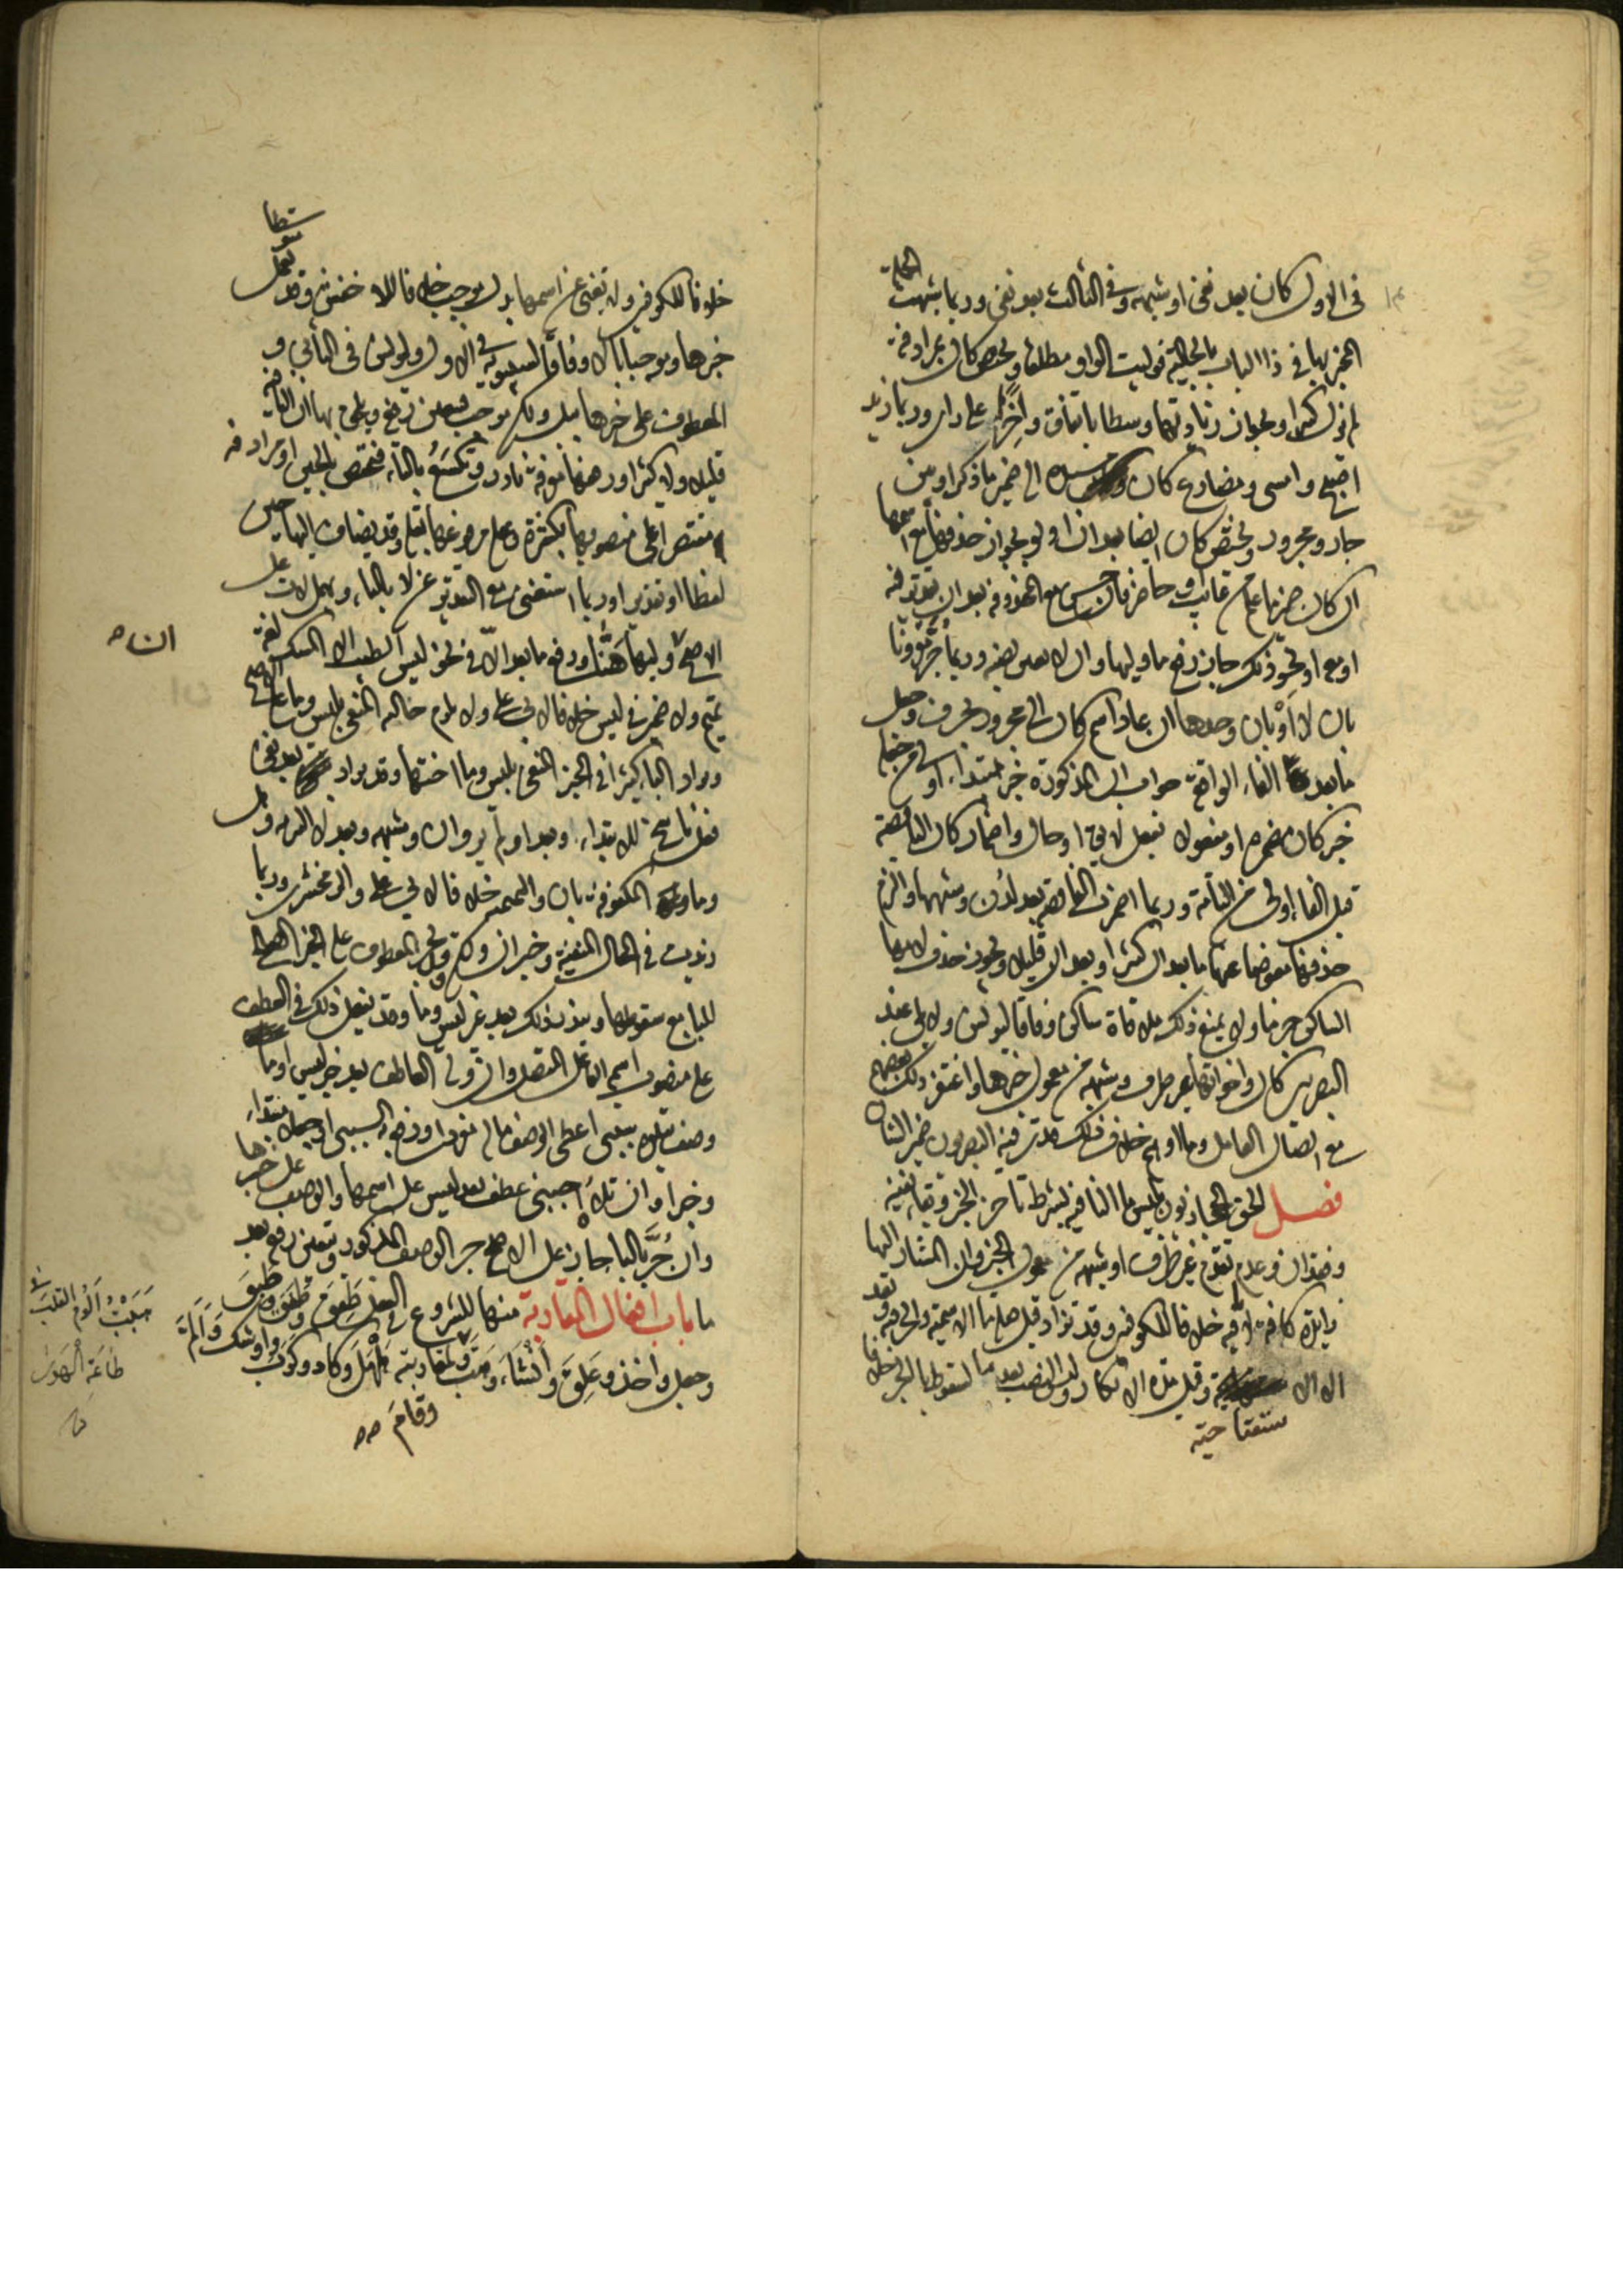 في الاول كان بعد نفي او شبهه وفي الثالث بعد نفي وربما شبهت الجملة
المخبر بها في ذا الباب بالحالية فوليت الواو مطلقا وتختص كان بمرادفة
لم يزل كثيرا وبجواز زيادتها وسطا باتفاق وآخرا على راى وربما زيد
اصبح وامسى ومضارع كان الى ضمير ما ذكر او بين
جار ومجرور وتختص كان ايضا بعد ان او لو بجواز حذفها مع اسمها
ان كان ضمير ما علم من غائب او حاضر فان حسن مع المحذوفة بعد ان تقدير فيه
او مع او نحو ذلك جاز رفع ما وليها والا تعين نصبه وربما جر مقرونا
بان لا او بان وحدها ان عاد اسم كان الى مجرور بحرف وجعل
ما بعد الفاء الواقعة جواب ان المذكورة خبر مبتداء اولى من جعله
خبر كان مضمرة او مفعولا بفعل لائق او حالا واضمار كان الناقصة
قبل الفاء اولى من التامة وربما اضمرت الناقصة بعد لدن وشبهها والتزم
حذفها معوضا عنها ما بعد ان كثيرا وبعد ان قليلا ويجوز حذف لامها
الساكن جزما ولا يمنع ذلك ملاقاة ساكن وفاقا ليونس ولا يلي عند
البصريين كان واخواتها غير ظرف وشبهه من معمول خبرها واغتفر ذلك بعضهم
مع اتصال العامل وما اوهم خلاف ذلك قدر فيه البصريون ضمير الشان
فصل الحق الحجازيون بليس ما النافية بشرط تاخر الخبر وبقاء نفيه
وفقد ان وعدم تقدم غير ظرف او شبهه من معمول الخبر وان المشار اليها
زائدة كافة لا نافية خلافا للكوفيين وقد تزاد قبل صلة ما الاسمية والحرفية وبعد
الا الا وقبل مدة الانكار وليس النصب بعد ما لسقوط باء الجر خلافا
ستفتاحية
خلافا للكوفيين ولا يغني عن اسمها بدل موجب خلافا للاخفش وقد تعمل متوسطا
خبرها وموجبا بالا وفاقا لسيبويه في الاول وليونس في الثاني و
المعطوف على خبرها ببل ولكن موجب فيتعين رفعه وتلحق بها ان النافية
قليلا ولا كثيرا ورفعها معرفة نادر وتكسع بالتاء فتختص بالحين او مرادفه
مقتصرا على منصوبها بكثرة وعلى مرفوعها بقلة وقد يضاف اليها حين
لفظا او تقديرا وربما استغني مع التقدير عن لا بالتاء وتهمل لات على
الاصح ان وليها هنا ورفع ما بعد الا في نحو ليس الطيب الا المسك لغة
تميم ولا ضمير في ليس خلافا لابي علي ولا تلزم حالية المنفي بليس وما على الاصح
وتزاد الباء كثيرا في الخبر المنفي بليس وما اختها وقد تزاد بعد نفي
فعل ناسخ للابتداء وبعد اولم يروا ان وشبهه وبعد لا التبرئة وهل
وما المكفوفة بان والتميمية خلافا لابي علي والزمخشري وربما
زيدت في الحال المنفية وخبر ان ولكن وقد يجر المعطوف على الخبر الصالح
للباء مع سقوطها ويندر ذلك بعد غير ليس وما وقد يفعل ذلك في العطف
على منصوب اسم الفاعل المتصل وان ولي العاطف بعد خبر ليس او ما
وصف يتلوه سببي اعطي الوصف ما له مفردا ورفع به السببي او جعلا مبتداء
وخبرا وان تلاه اجنبي عطف بعد ليس على اسمها والوصف على خبرها
وان جر بالباء جاز على الاصح جر الوصف المذكور ويتعين رفعه بعد
ما باب افعال المقاربة منها للشروع في الفعل طَفِقَ وطَفَقَ وطَبِقَ
وجعل واخذ وعَلِقَ وانشَأَ وهَبَّ ولمقاربته هَلْهَلَ وكاد وكرب واوشك وَاَلَمَّ
وقام صح
ان صح
هَبَبْتُ اَلُومُ القَلْبَ في
طاعَةِ الهَوى